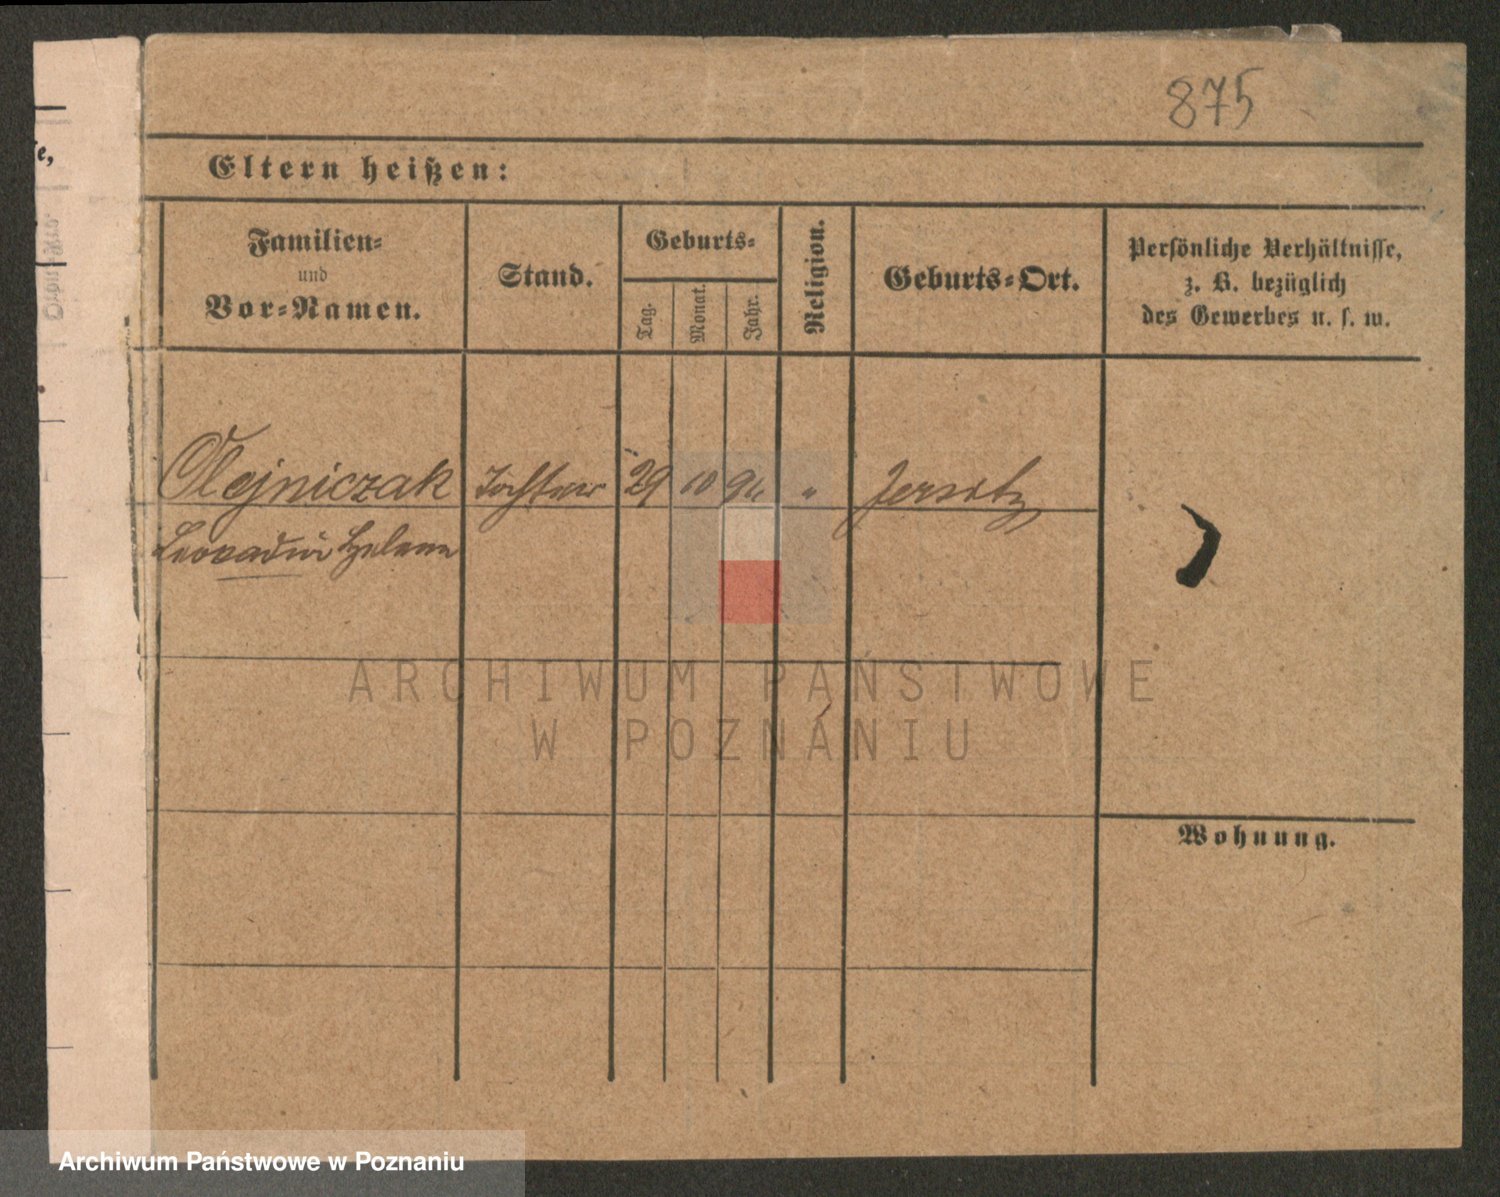 875
Eltern heißen:
Familien=
und
Vor=Namen.
Stand.
Geburts=
Tag.
Monat.
Jahr.
Religion.
Geburts=Ort.
Persönliche Verhältnisse,
z. B. bezüglich
des Gewerbes u. s. w.
Olejniczak Tochter 29 10 94 " Jersitz
Leocadia Helena
ARCHIWUM PAŃSTWOWE
W POZNANIU
Wohnung.
Archiwum Państwowe w Poznaniu